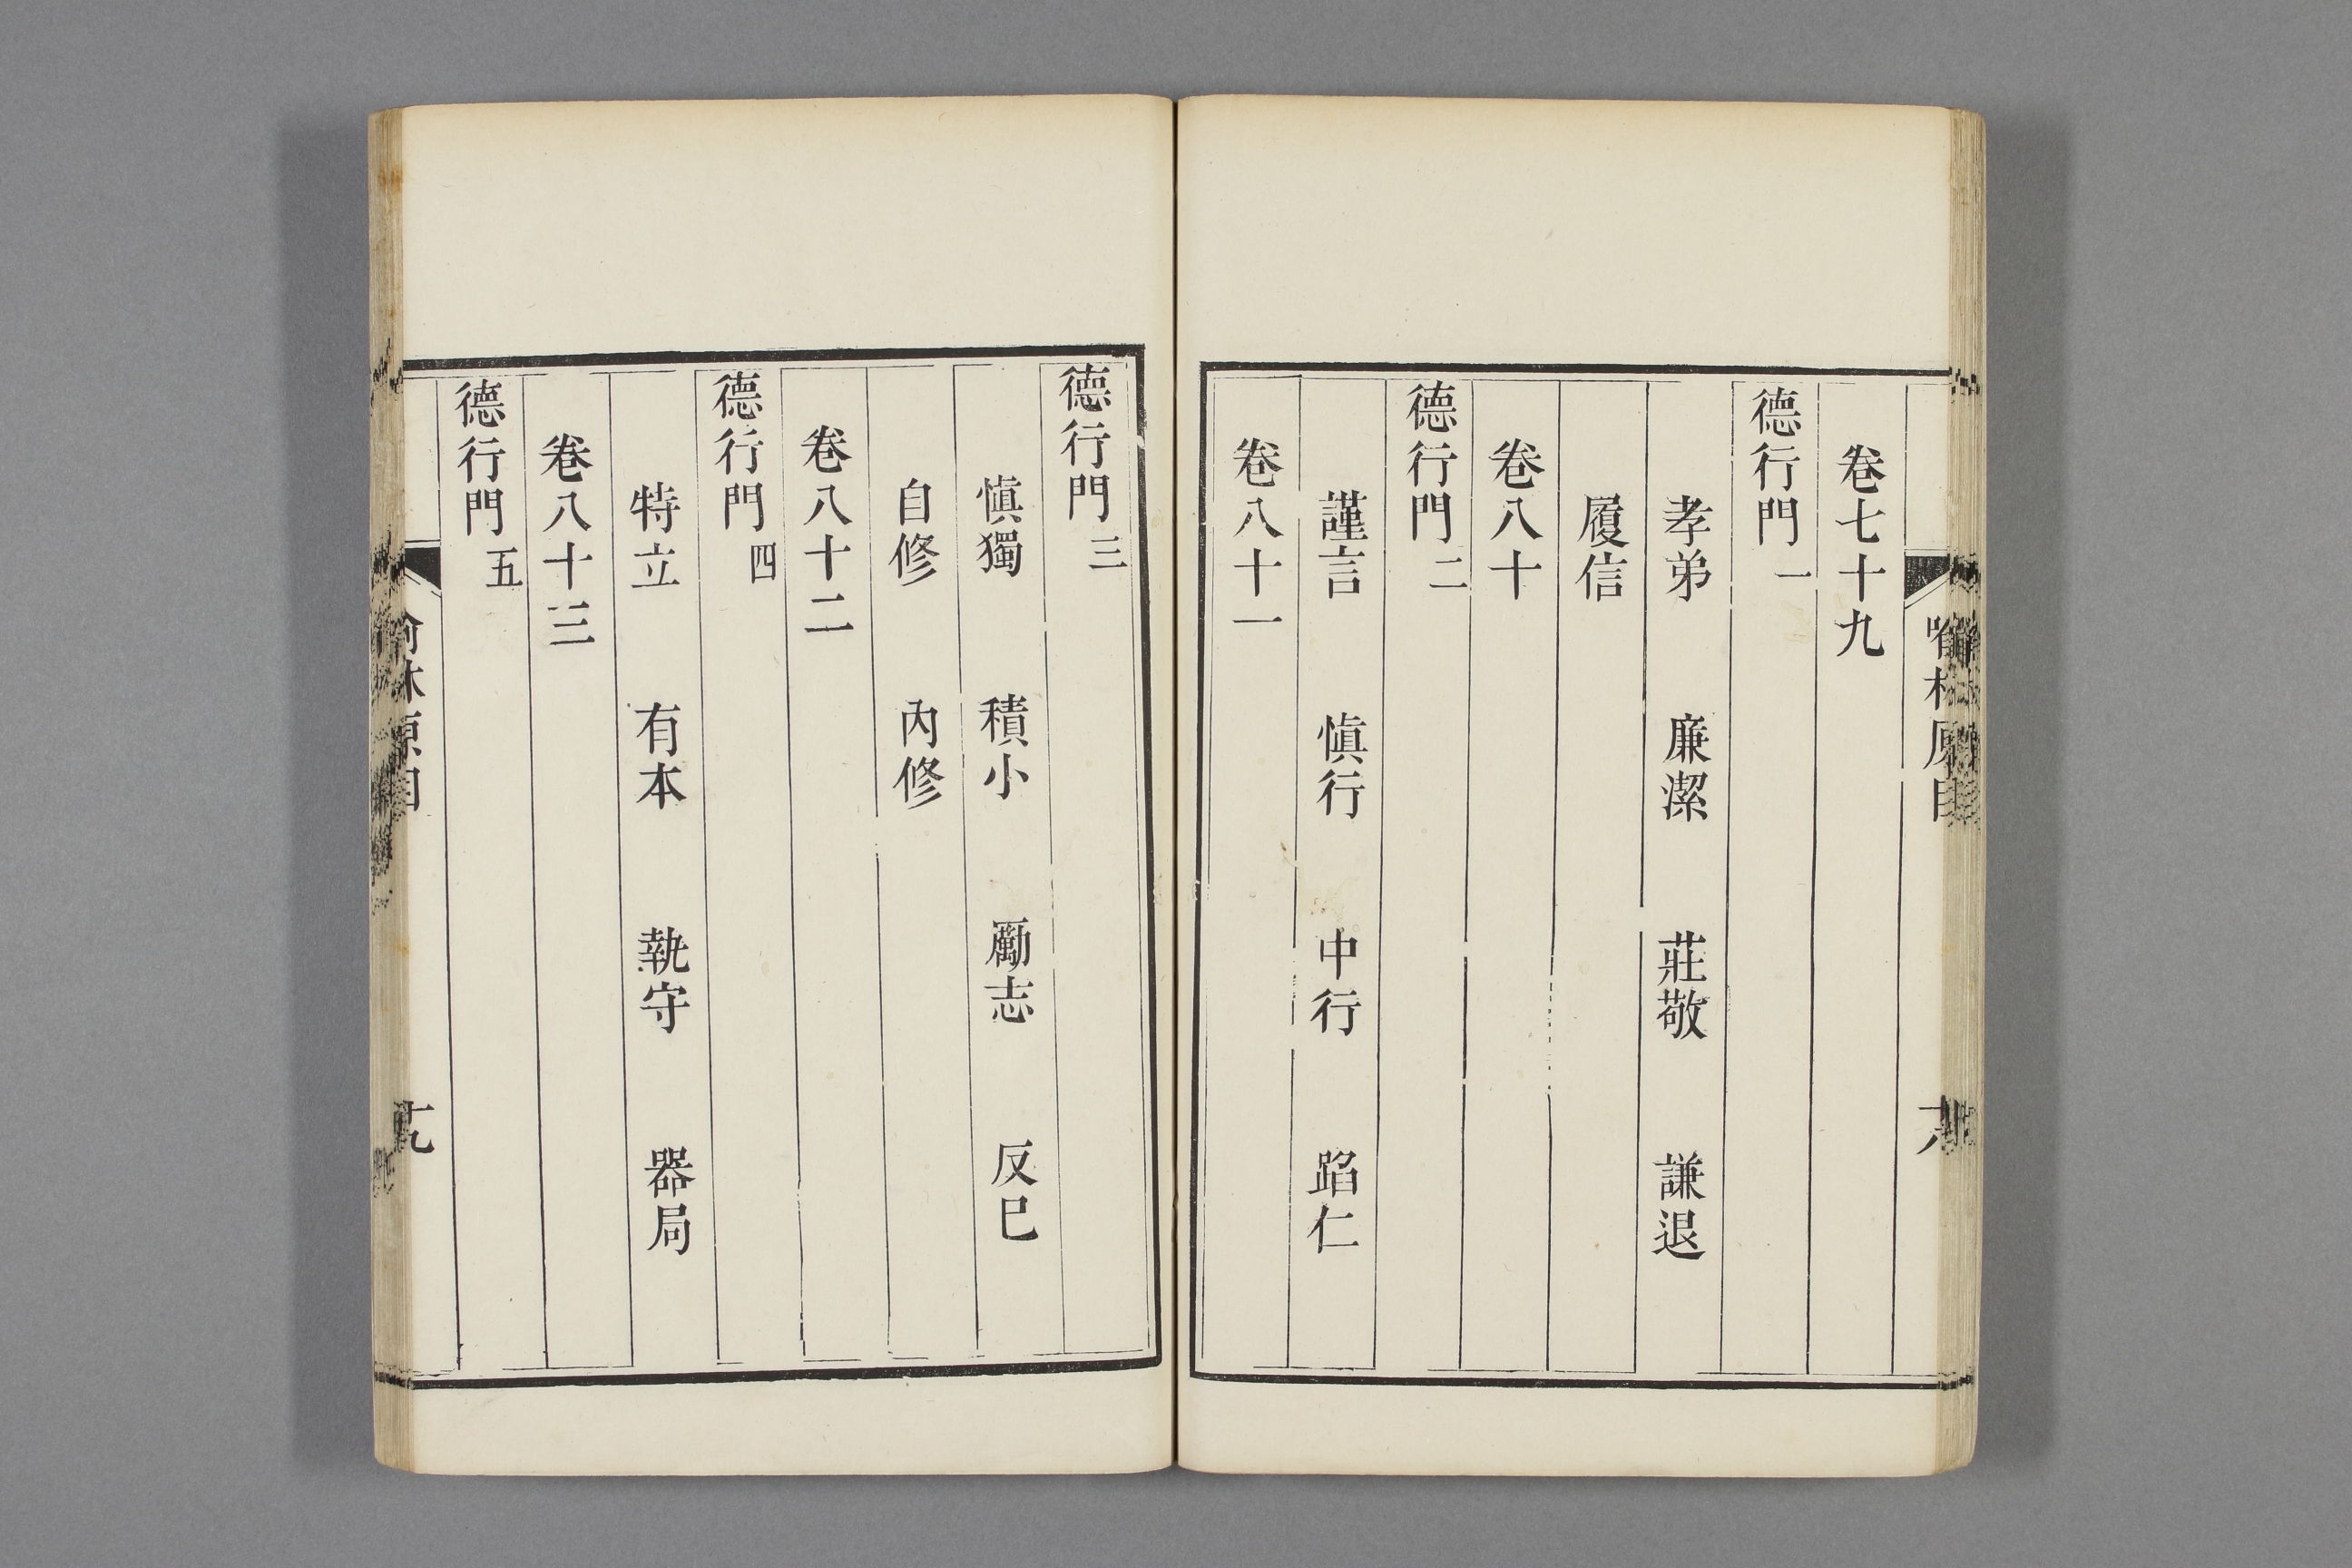 卷七十九
德行門一
孝弟　廉潔　莊敬　謙退
履信
卷八十
德行門二
謹言　慎行　中行　蹈仁
卷八十一
德行門三
慎獨　積小　勵志　反己
自修　內修
卷八十二
德行門四
特立　有本　執守　器局
卷八十三
德行門五
喻林原目
十九